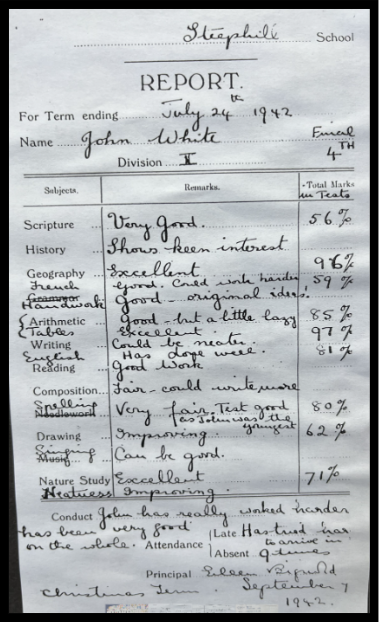 Steephill School
REPORT.
For Term ending July 24th 1942
Name John White Final
Division V 4TH
Subjects. Remarks. Total Marks
in Tests
Scripture Very Good. 56%
History Shows keen interest
Geography Excellent 96%
French Good. Could work harder 59%
Grammar
Handwork Good - original ideas!
Arithmetic Good - but a little lazy 85%
Tables Excellent 97%
Writing Could be neater.
English Has done well. 81%
Reading Good Work
Composition Fair - could write more
Spelling Very fair. Test good 80%
Needlework (as John was the
youngest
Drawing Improving. 62%
Singing Can be good.
Music
Nature Study Excellent 71%
Neatness Improving.
Conduct John has really worked harder
has been very good Late Has tried
on the whole. Attendance to arrive in
Absent 9 times
Principal Eileen
Christmas Term. September 7
1942.